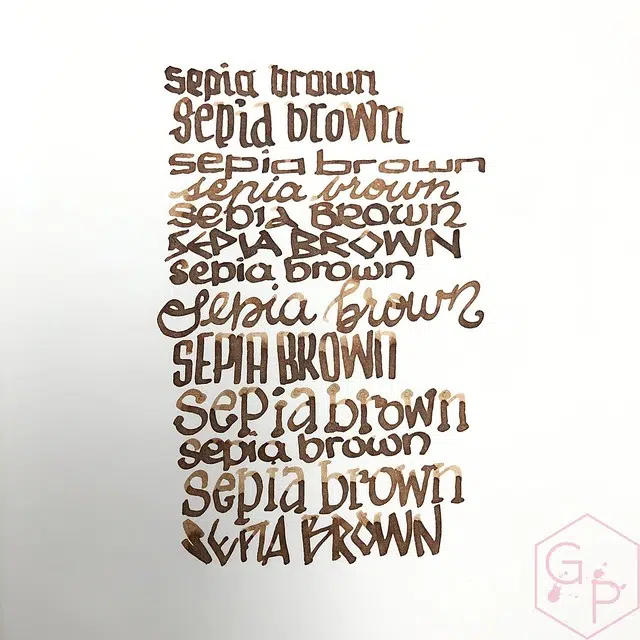 sepia brown
sepia brown
sepia brown
sepia brown
sepia Brown
SEPIA BROWN
sepia brown
sepia brown
SEPIA BROWN
sepia brown
sepia brown
sepia brown
SEPIA BROWN
G P